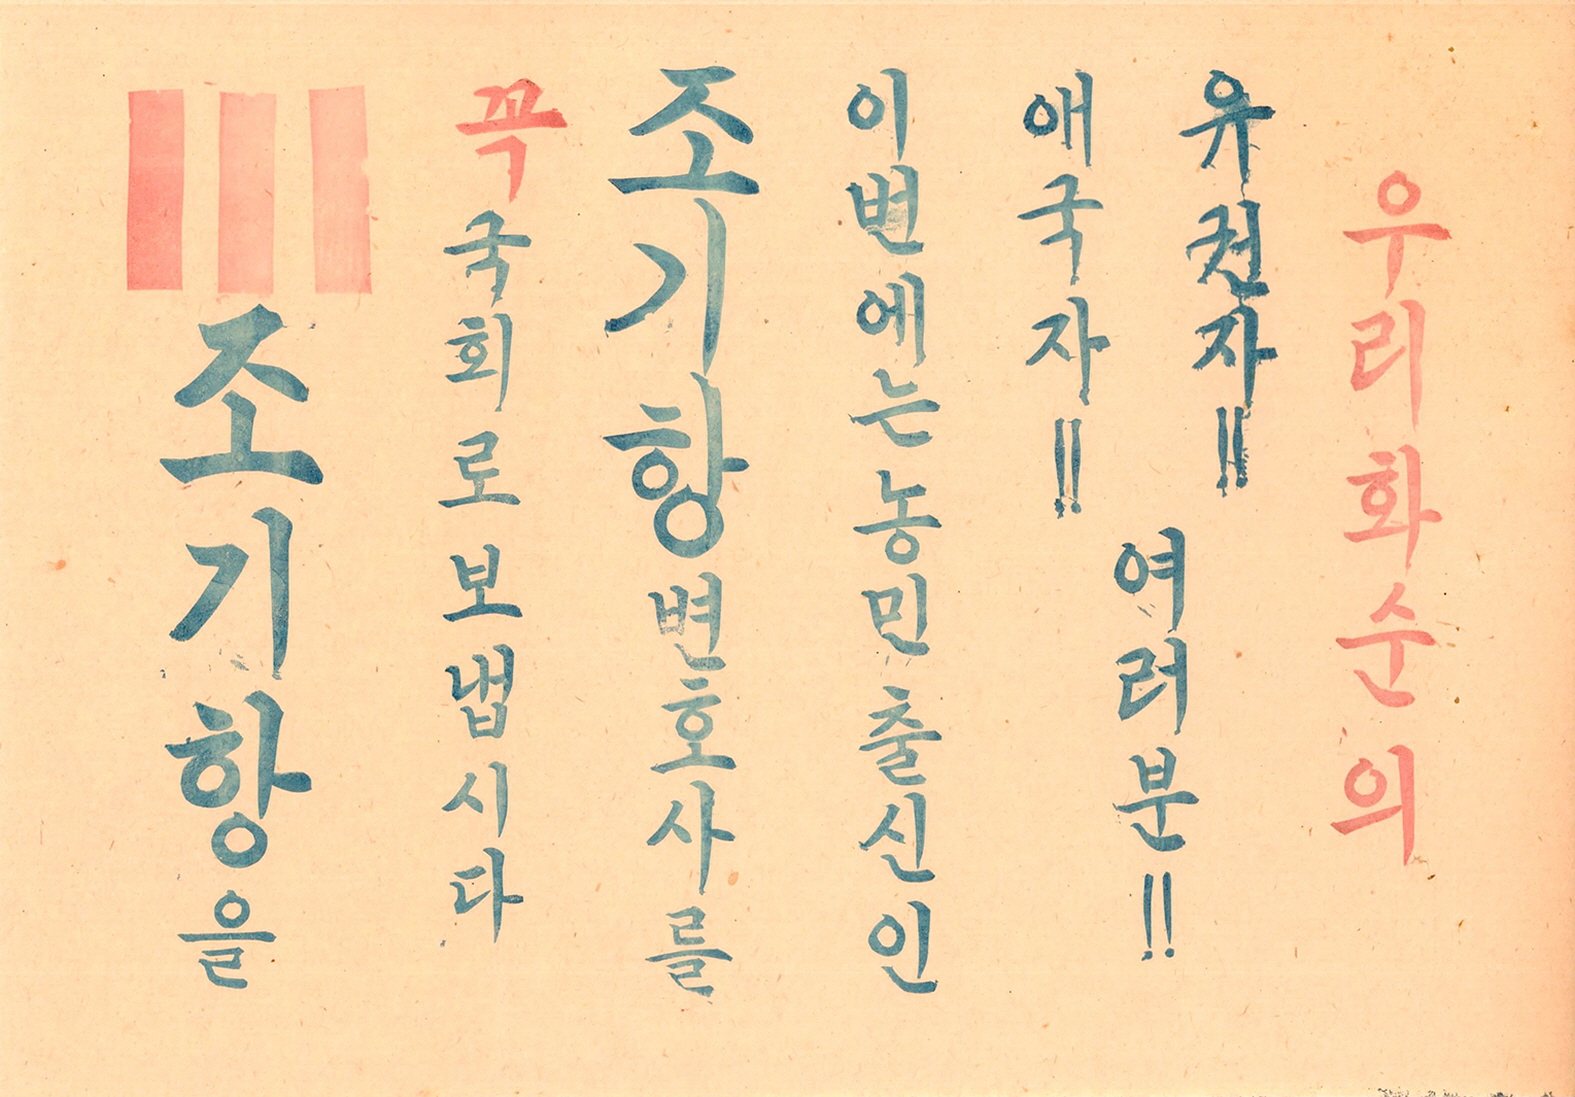 우리화순의
유권자!!
애국자!!
여러분!!
이번에는농민출신인
조기항변호사를
꼭국회로보냅시다
III
조기항을